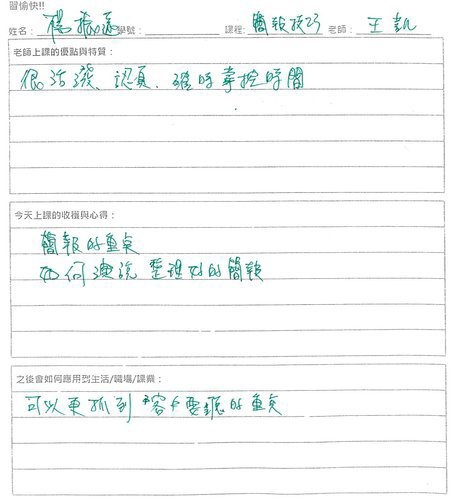 習愉快!!
姓名：楊振 學號： 課程：簡報技巧 老師：王凱
老師上課的優點與特質：
很活潑、認真、確時掌控時間
今天上課的收穫與心得：
簡報的重点
如何演說 整理好的簡報
之後會如何應用到生活/職場/課業：
可以更抓到 客戶要聽的重点